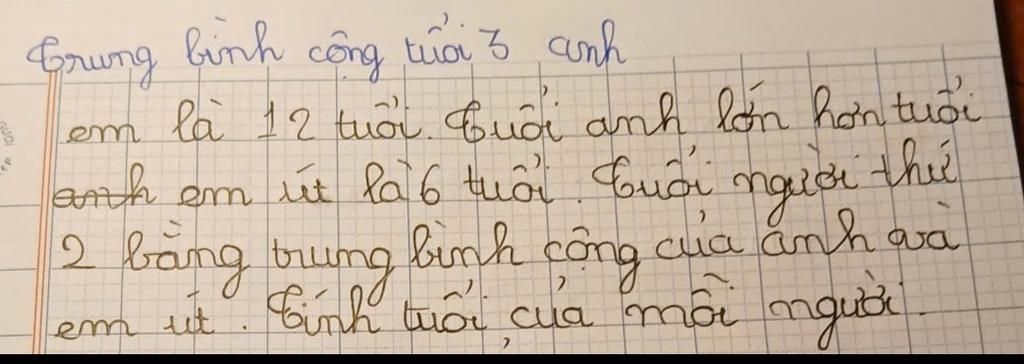 Trung bình cộng tuổi 3 anh
em là 12 tuổi. Tuổi anh lớn hơn tuổi
anh em út là 6 tuổi. Tuổi người thứ
2 bằng trung bình cộng của anh và
em út. Tính tuổi của mỗi người